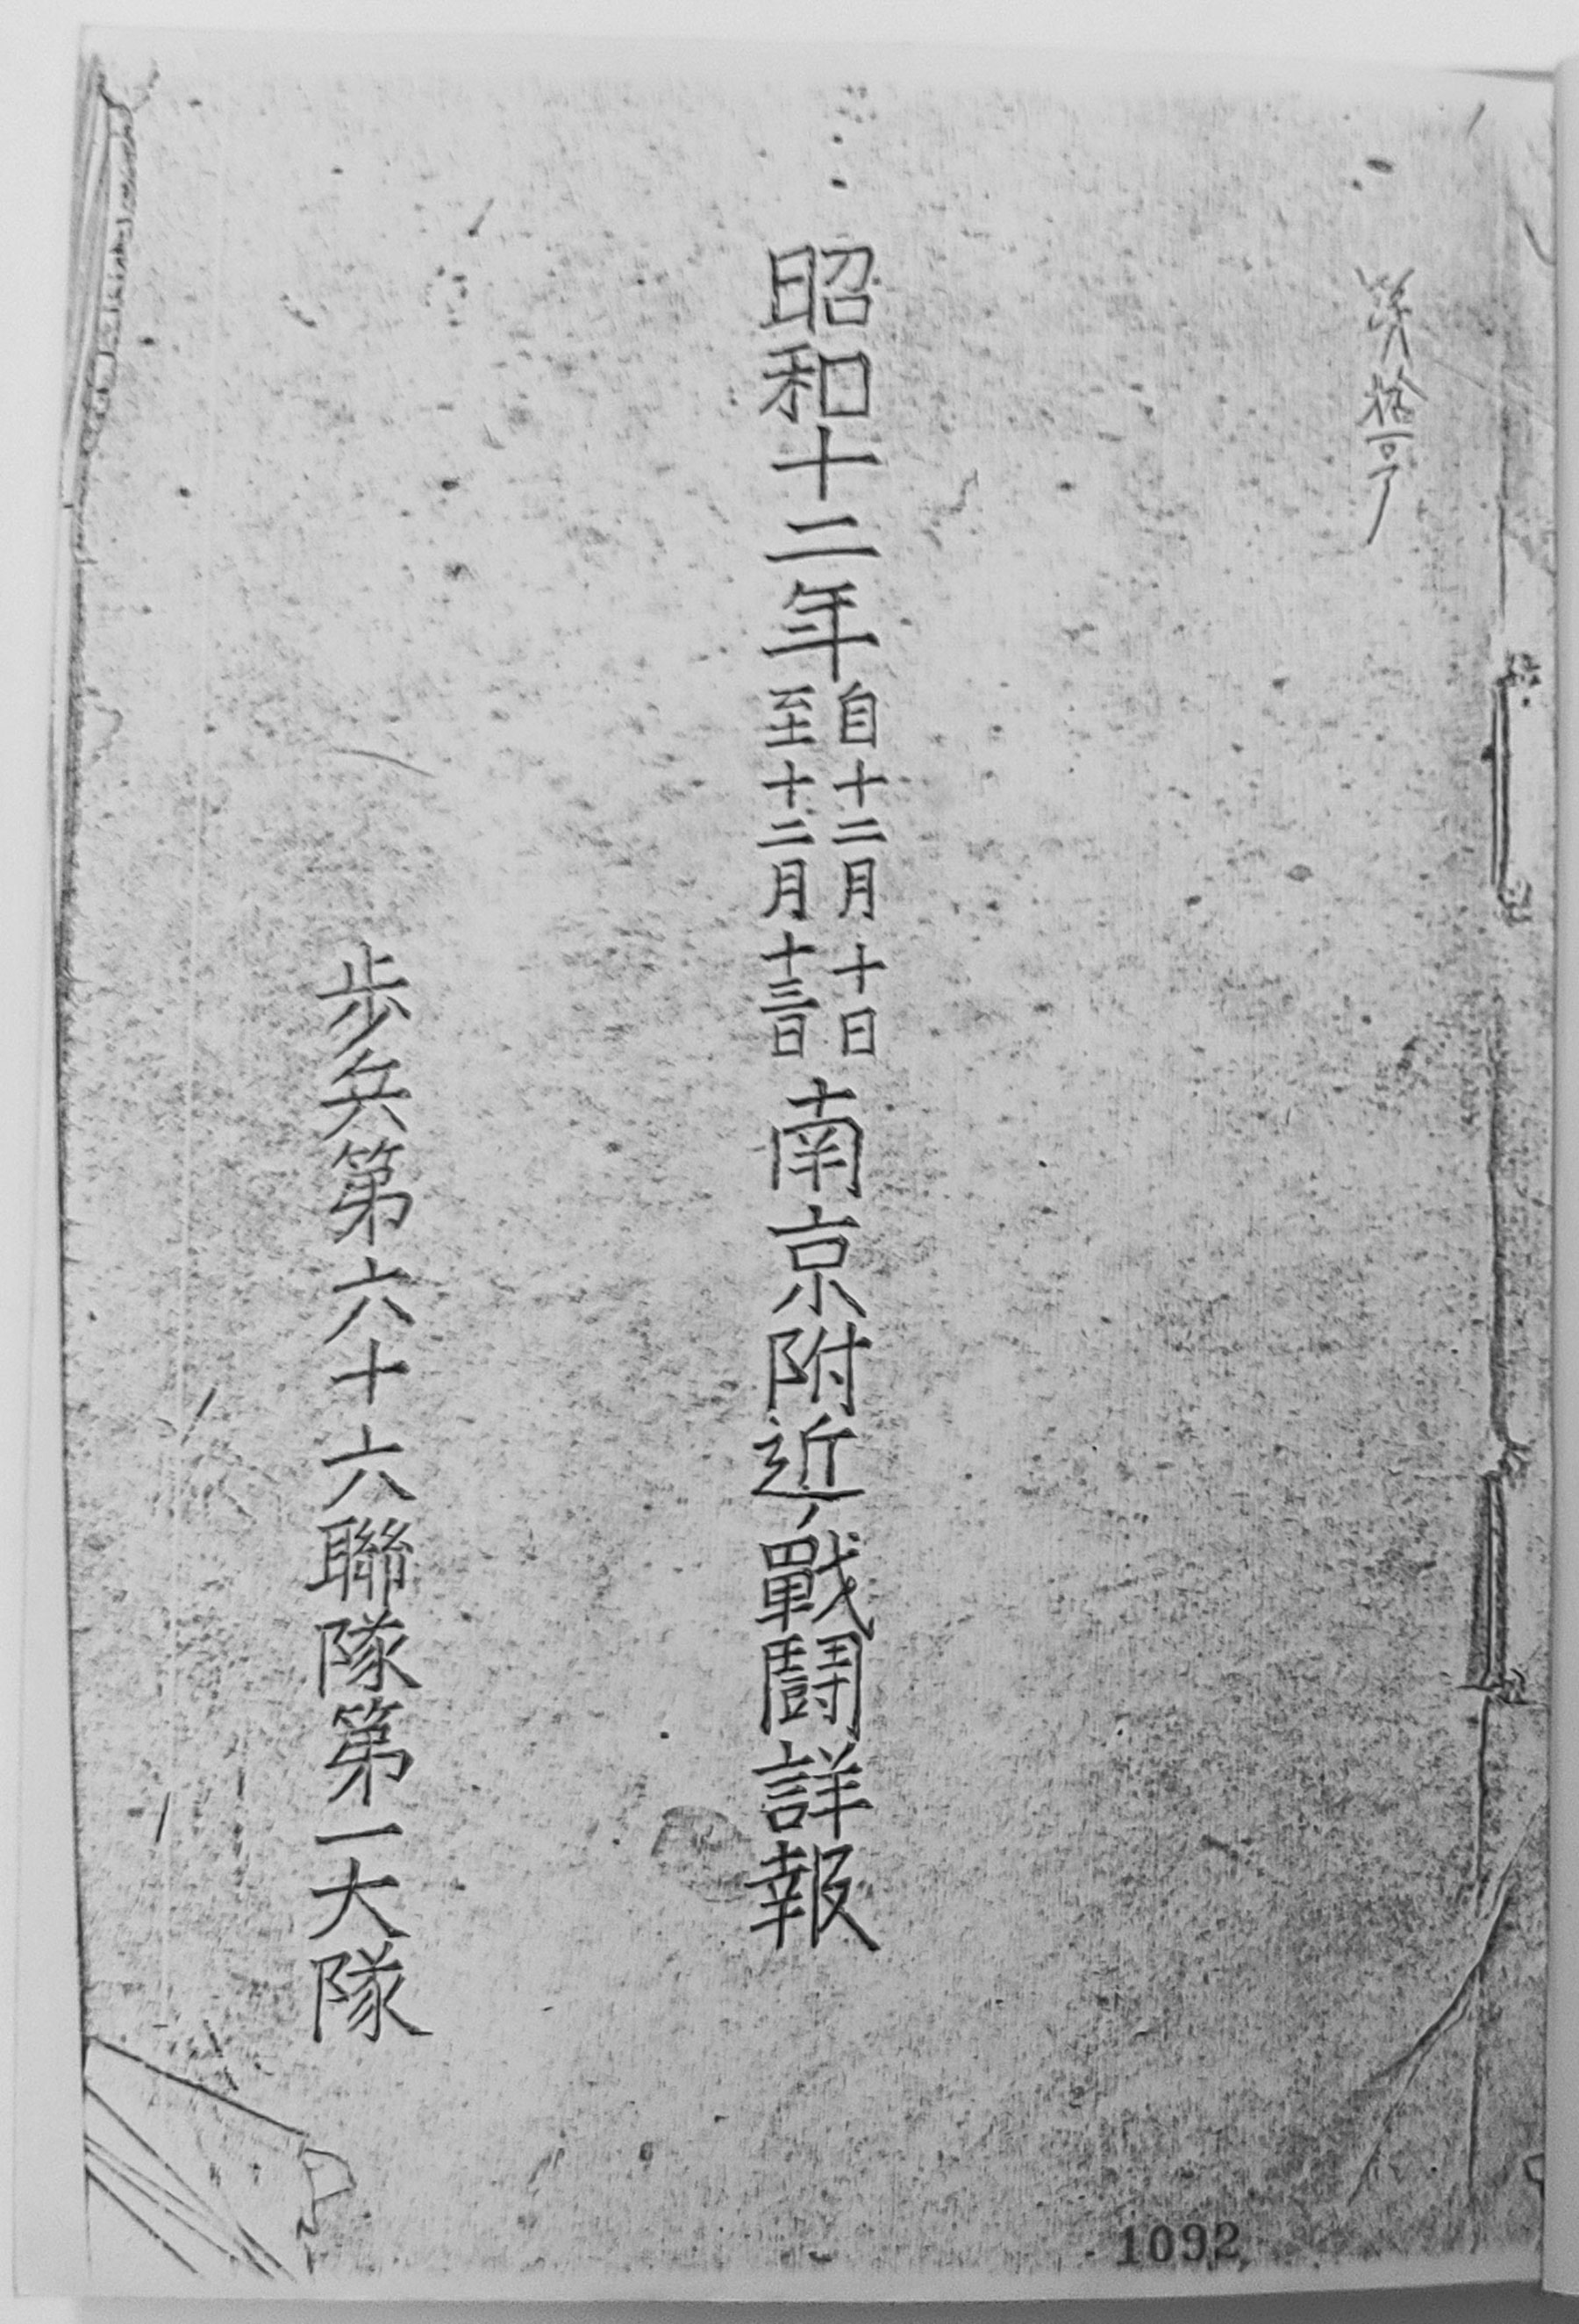 昭和十二年自十二月十日至十二月十三日南京附近ノ戰鬪詳報
步兵第六十六聯隊第一大隊
1092